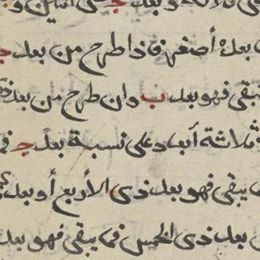 ثلاثة وبعد ج اثنين و
بعد أصغر فاذا طرح من بعد ج
يبقى فهو بعد ب وان طرح من بعد
ثلاثة أبعاد على نسبة بعد ج
ما يبقى فهو بعد ذى الأربع أو بعد
بعد ذى الخمس فما يبقى فهو بعد